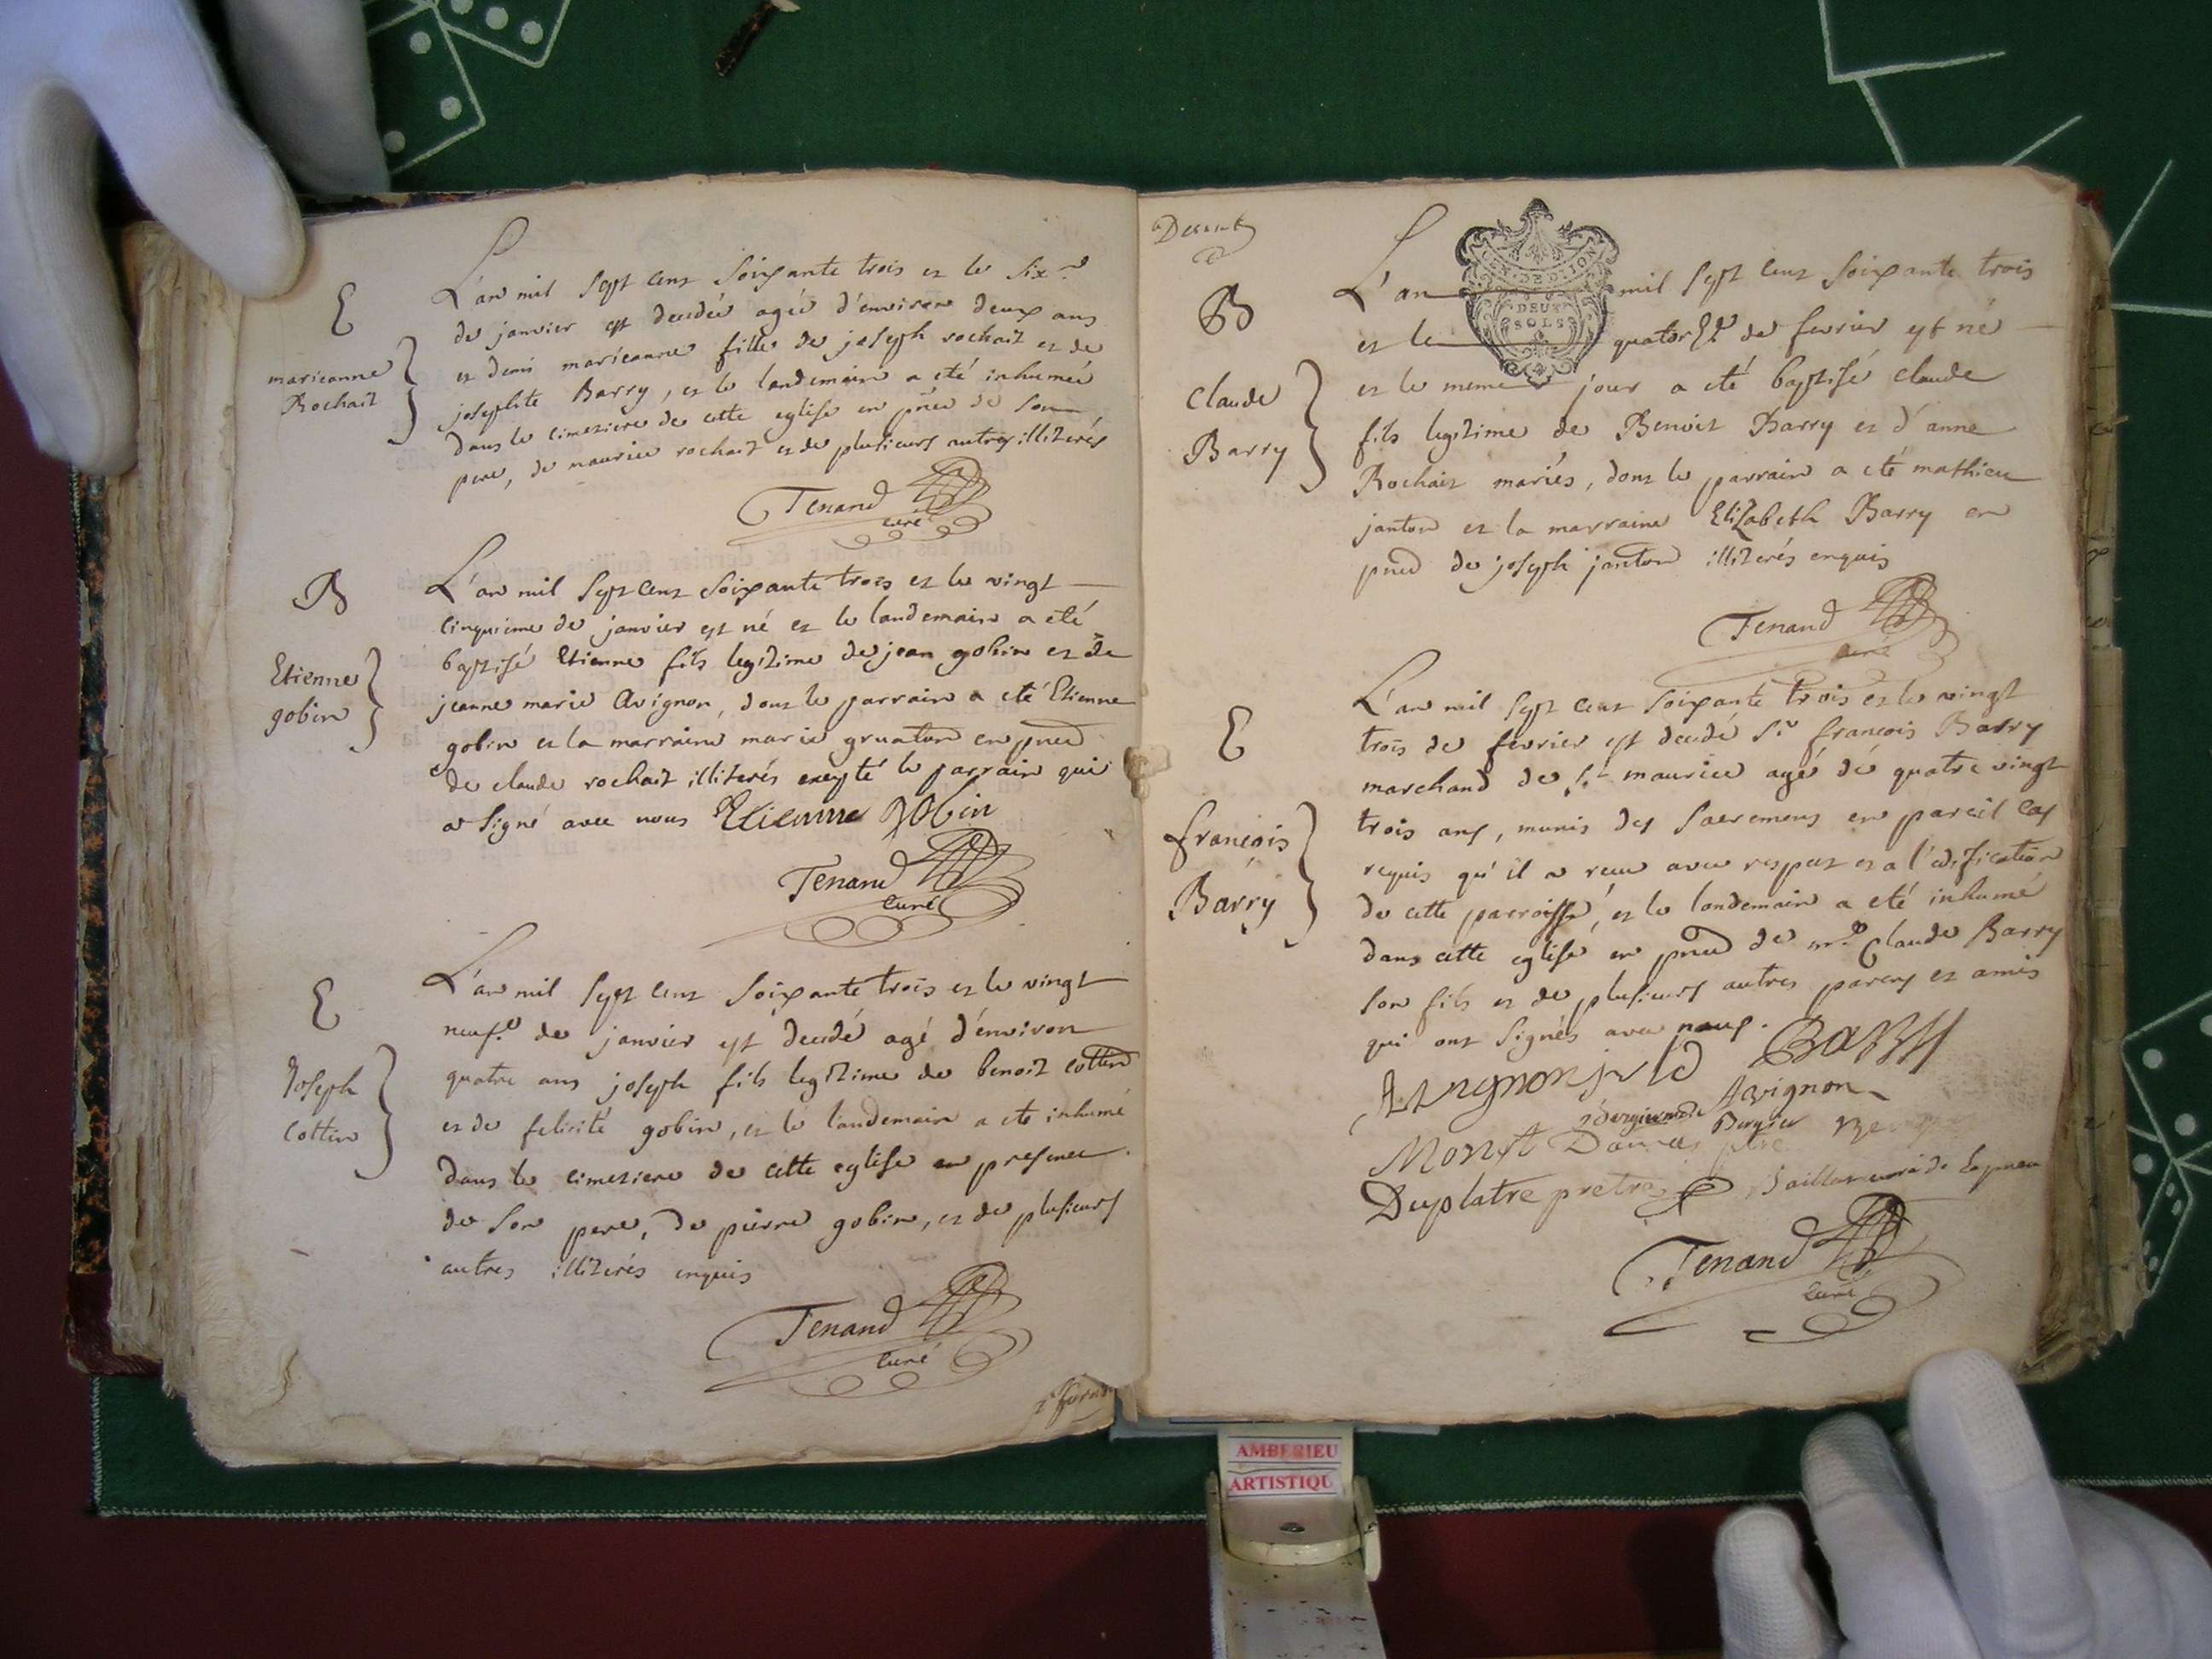 E
marieanne
Rochait
L'an mil sept cent soixante trois et le six.e
de janvier est decedée agée d'environ deux ans
et demi marieanne fille de joseph rochait et de
josephte Barry, et le landemain a eté inhumée
dans le cimetiere de cette eglise en pnce de son
pere, de maurice rochait et de plusieurs autres illiterés
Tenand
curé
B
Etienne
gobin
L'an mil sept cent soixante trois et le vingt
cinquieme de janvier est né et le landemain a eté
baptisé Etienne fils legitime de jean gobin et de
jeanne marie Avignon, dont le parrain a eté Etienne
gobin et la marraine marie gruaton en pnce
de claude rochait illiterés exepté le parrain qui
a signé avec nous Etienne gobin
Tenand
curé
E
Joseph
Cottin
L'an mil sept cent soixante trois et le vingt
neuf.e de janvier est decedé agé d'environ
quatre ans joseph fils legitime de benoit cottin
et de felicité gobin, et le landemain a eté inhumé
dans le cimetiere de cette eglise en presence
de son pere, de pierre gobin, et de plusieurs
autres illiterés enquis
Tenand
curé
B
Claude
Barry
GEN. DE DIJON
DEUX
SOLS
L'an mil sept cent soixante trois
et le quatorze de fevrier est né
et le meme jour a eté baptisé claude
fils legitime de Benoit Barry et d'anne
Rochait mariés, dont le parrain a eté mathieu
janton et la marraine Elizabeth Barry en
pnce de joseph janton illiterés enquis
Tenand
curé
E
françois
Barry
L'an mil sept cent soixante trois et le vingt
trois de fevrier est decedé Sr françois Barry
marchand de St maurice agé de quatre vingt
trois ans, munis des sacremens en pareil cas
requis qu'il a receu avec respect et a l'edification
de cette parroisse, et le landemain a eté inhumé
dans cette eglise en pnce de mre Claude Barry
son fils et de plusieurs autres parens et amis
qui ont signés avec nous.
Barry
Avignon
Bergier
Duplatre pretre
Tenand
curé
AMBERIEU
ARTISTIQU